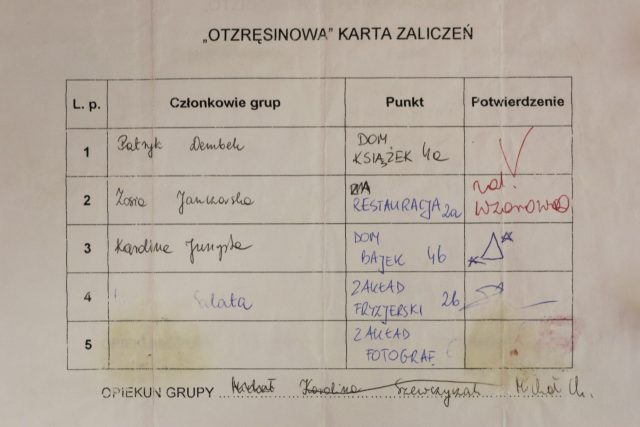 „OTZRĘSINOWA” KARTA ZALICZEŃ
L. p. Członkowie grup Punkt Potwierdzenie
1 Patryk Dembek DOM KSIĄŻEK 4a
2 Zosia RESTAURACJA 2a zal. wzorowo
3 Karolina DOM BAJEK 4b
4 ZAKŁAD FRYZJERSKI 2b
5 ZAKŁAD FOTOGRAF.
OPIEKUN GRUPY Michał Karolina Szewczyk Michał Ch.